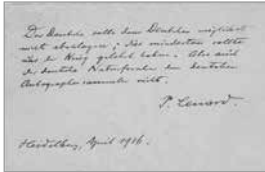 Der Deutsche sollte dem Deutschen möglichst
nicht abschlagen; das mindestens sollte
uns der Krieg gelehrt haben. Also auch
der deutsche Naturforscher dem deutschen
Autographensammler nicht.
P. Lenard.
Heidelberg, April 1916.